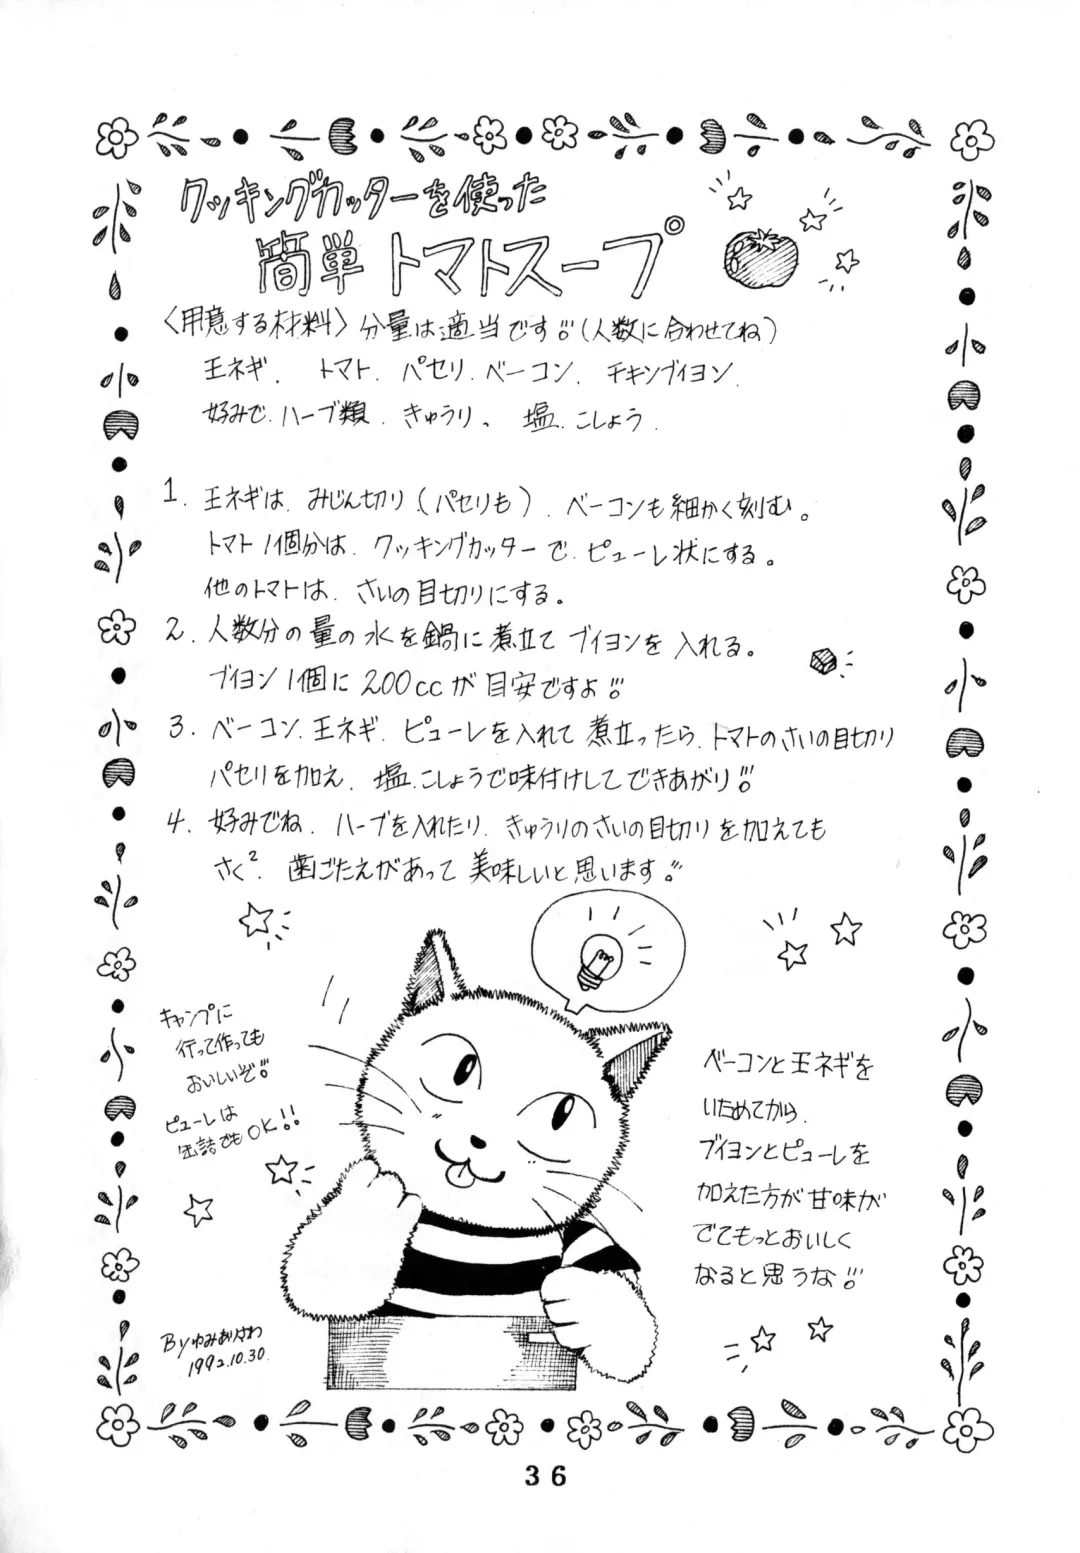 クッキングカッターを使った
簡単トマトスープ
〈用意する材料〉分量は適当です!!(人数に合わせてね)
玉ネギ、トマト、パセリ、ベーコン、チキンブイヨン、
好みで、ハーブ類、きゅうり。塩、こしょう、
1. 玉ネギは、みじん切り、(パセリも)、ベーコンも細かく刻む。
トマト1個分は、クッキングカッターで、ピューレ状にする。
他のトマトは、さいの目切りにする。
2. 人数分の量の水を鍋に煮立てブイヨンを入れる。
ブイヨン1個に200ccが目安ですよ!!
3. ベーコン、玉ネギ、ピューレを入れて煮立ったら、トマトのさいの目切り
パセリを加え、塩、こしょうで味付けしてできあがり!!
4. 好みでね、ハーブを入れたり、きゅうりのさいの目切りを加えても
さく²、歯ごたえがあって美味しいと思います!!
キャンプに
行って作っても
おいしいぞ!!
ピューレは
缶詰でもOK!!
ベーコンと玉ネギを
いためてから、
ブイヨンとピューレを
加えた方が甘味が
でてもっとおいしく
なると思うな!!
By ゆみありさわ
1992.10.30.
36